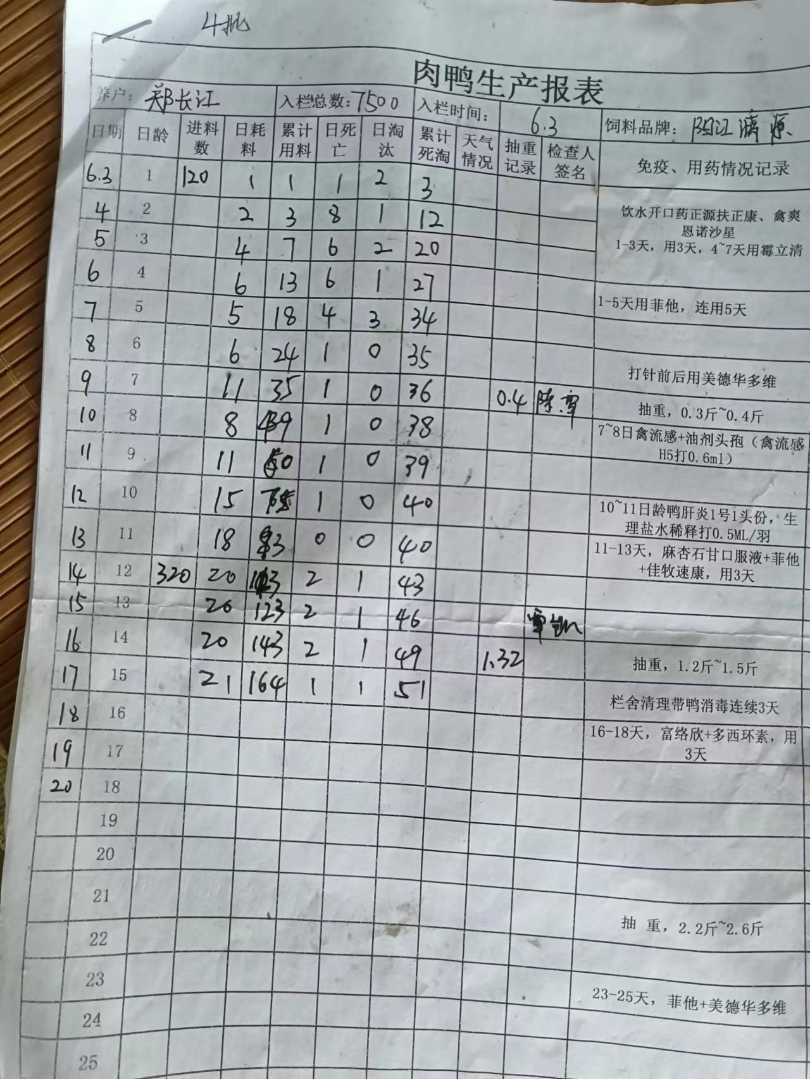 4批
肉鸭生产报表
养户: 郑长江 入栏总数:7500 入栏时间: 6.3 饲料品牌: 阳江漓源
日期 日龄 进料数 日耗料 累计用料 日死亡 日淘汰 累计死淘 天气情况 抽重记录 检查人签名 免疫、用药情况记录
6.3 1 120 1 1 1 2 3
4 2 2 3 8 1 12 饮水开口药正源扶正康、禽爽
恩诺沙星
5 3 4 7 6 2 20 1-3天，用3天，4~7天用霉立清
6 4 6 13 6 1 27
7 5 5 18 4 3 34 1-5天用菲他，连用5天
8 6 6 24 1 0 35
打针前后用美德华多维
9 7 11 35 1 0 36 0.4 抽重，0.3斤~0.4斤
10 8 8 39 1 0 38 7~8日禽流感+油剂头孢（禽流感
H5打0.6ml）
11 9 11 50 1 0 39
12 10 15 1 0 40 10~11日龄鸭肝炎1号1头份，生
理盐水稀释打0.5ML/羽
13 11 18 83 0 0 40 11-13天，麻杏石甘口服液+菲他
+佳牧速康，用3天
14 12 320 20 103 2 1 43
15 13 20 123 2 1 46
16 14 20 143 2 1 49 1.32 抽重，1.2斤~1.5斤
17 15 21 164 1 1 51 栏舍清理带鸭消毒连续3天
18 16 16-18天，富络欣+多西环素，用
3天
19 17
20 18
19
20
21 抽 重，2.2斤~2.6斤
22
23 23-25天，菲他+美德华多维
24
25